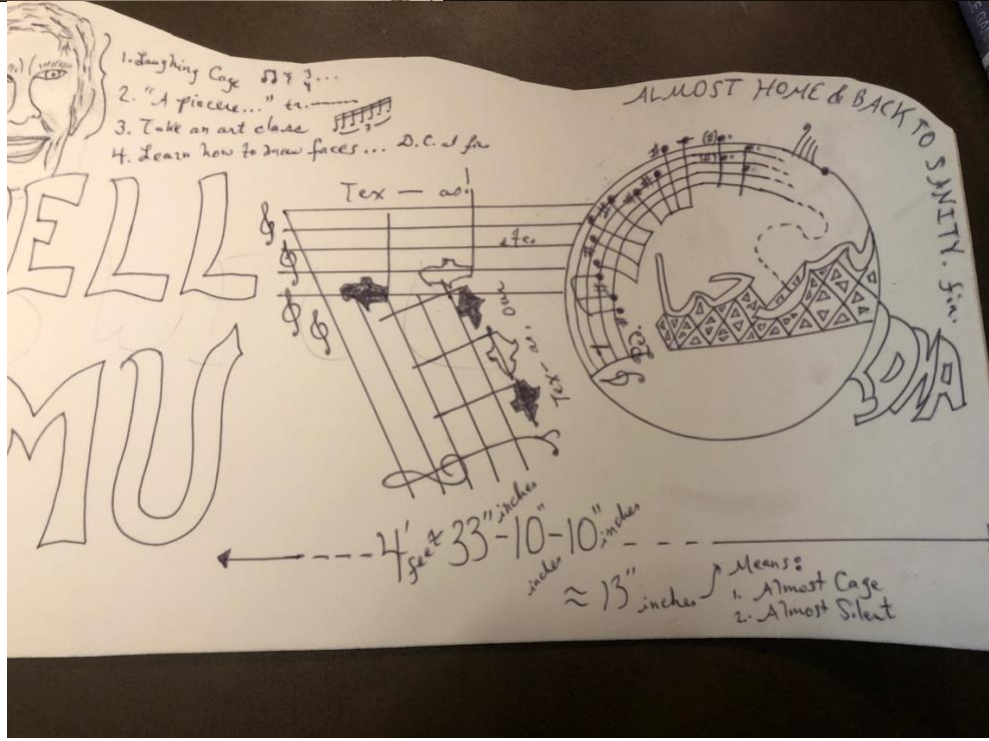 1. Laughing Cage
2. "A piacere..." tr.
3. Take an art class
4. Learn how to draw faces... D.C. al fin
ALMOST HOME & BACK TO SANITY. fin.
ELL
MU
Tex — as!
etc.
Tex - as,
4' feet 33" inches -10" inches -10" inches
≈ 13" inches
Means:
1. Almost Cage
2. Almost Silent